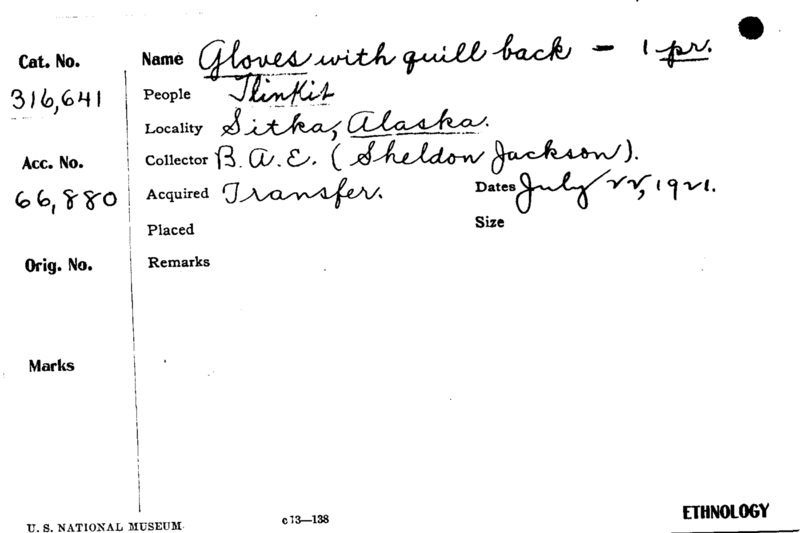 Cat. No.
316,641
Acc. No.
66,880
Orig. No.
Marks
Name Gloves with quill back - 1 pr.
People Tlinkit
Locality Sitka, Alaska.
Collector B. A. E. (Sheldon Jackson).
Acquired Transfer. Dates July 22, 1921.
Placed Size
Remarks
U. S. NATIONAL MUSEUM c13—138 ETHNOLOGY